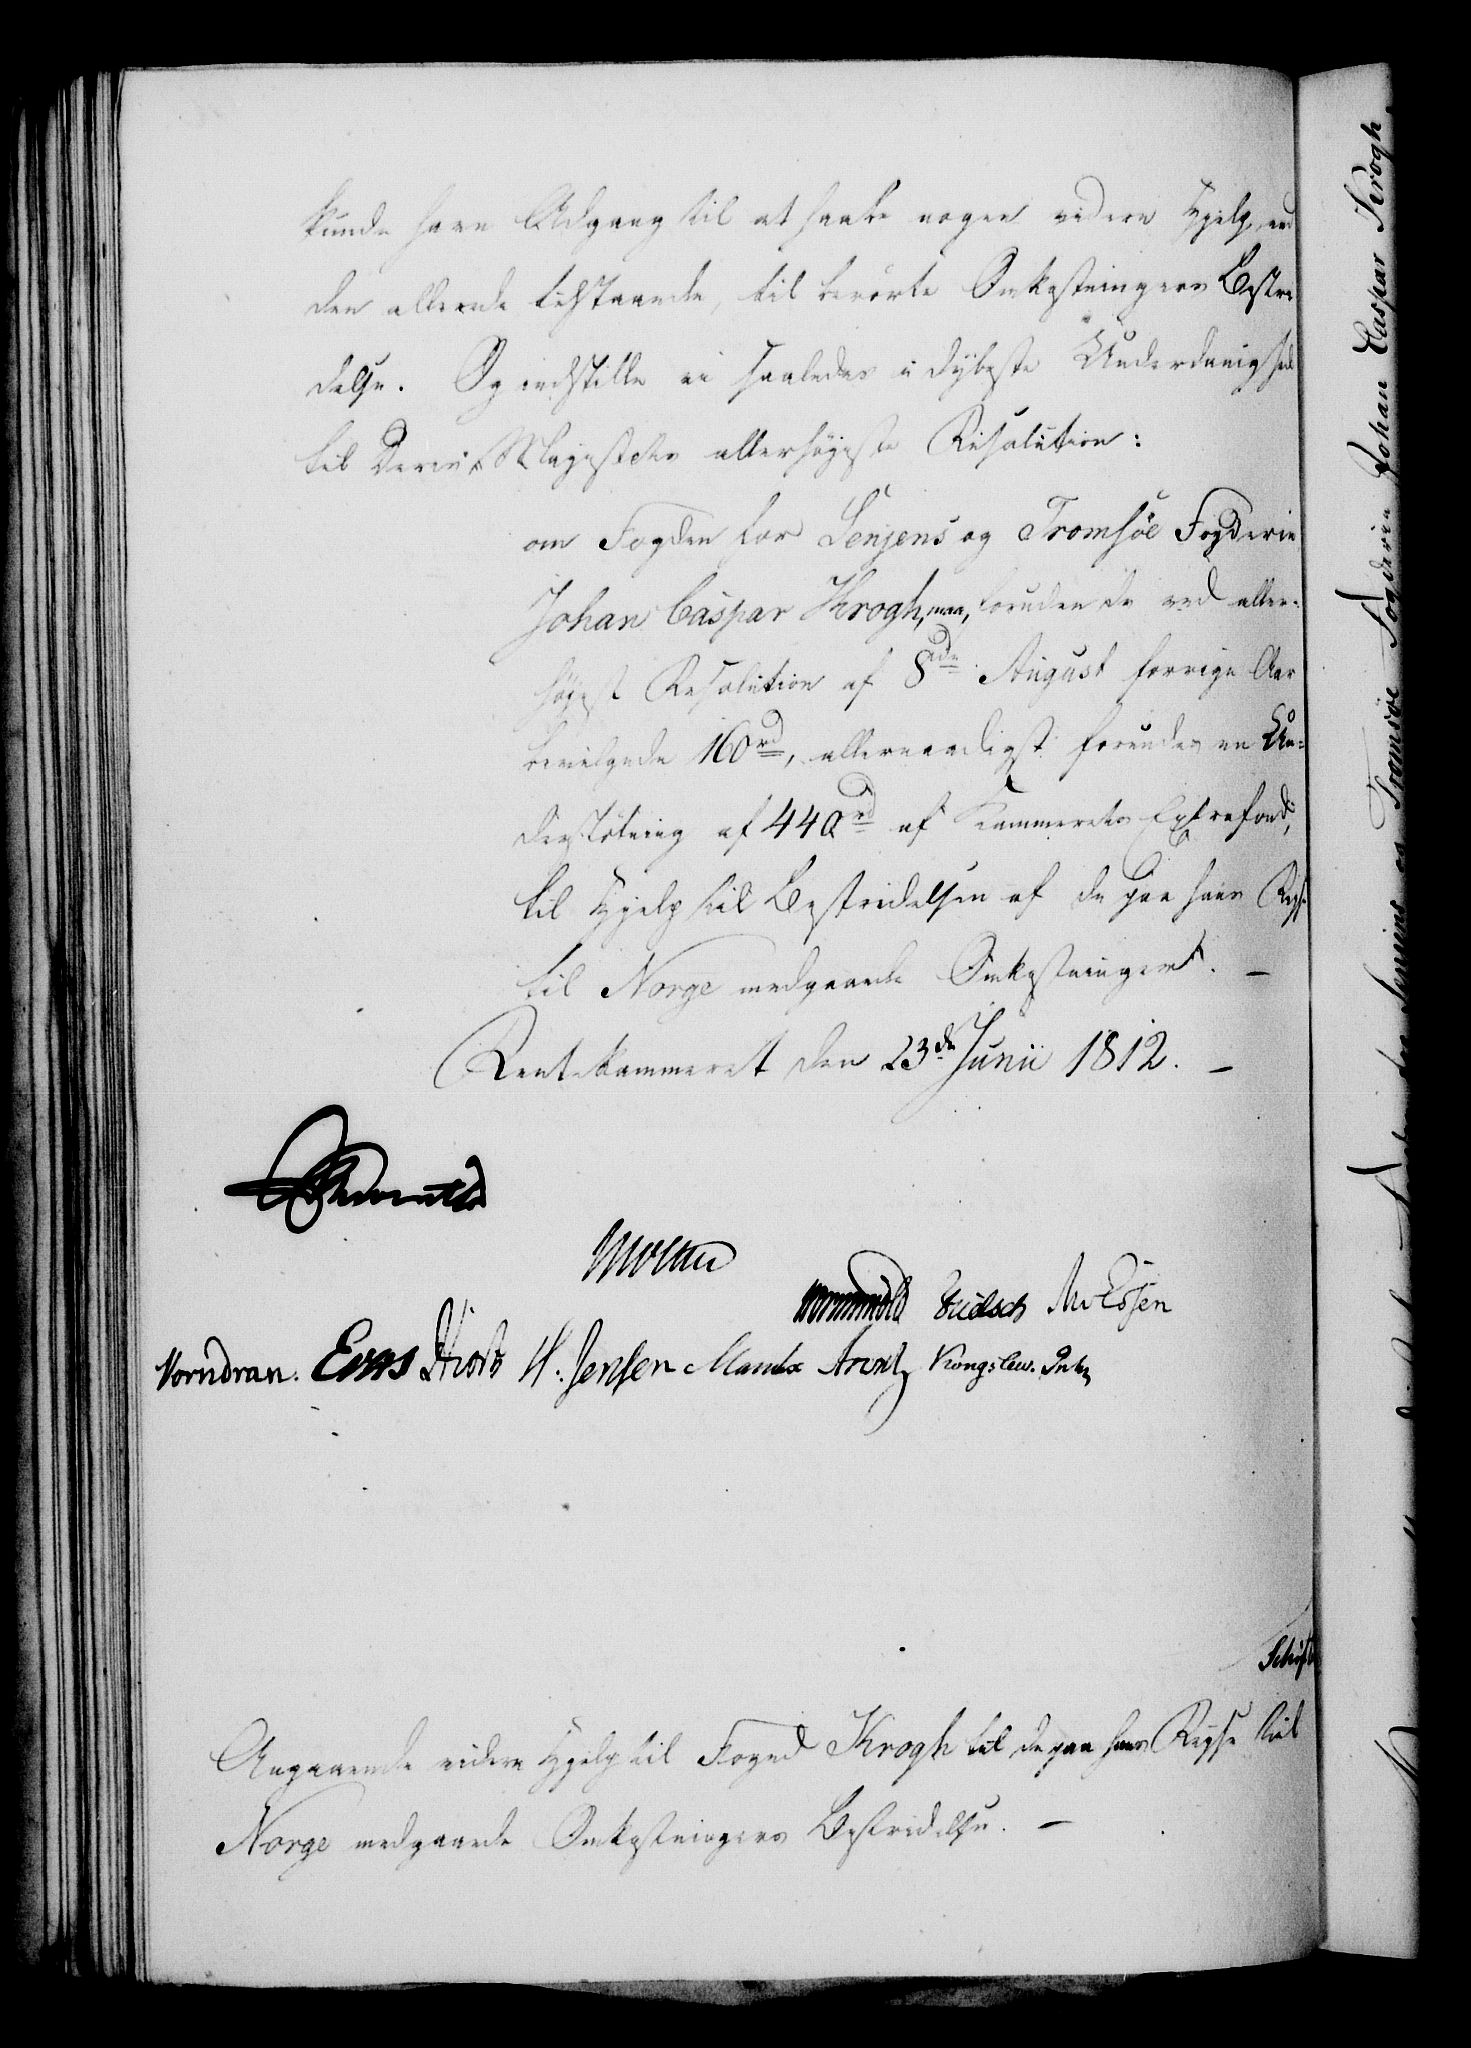 kunde have Adgang til at haabe nogen videre Hjelp, end
den allerede tilstaaede, til berørte Omkostningers Bestri
delse. Og indstille vi saaledes i dybeste Underdanighed
til Deres Majestets allerhøyeste Resolution:
om Fogden for Senjens og Tromsöe Fogderie
Johan Caspar Krogh, maa, foruden de ved aller-
høyest Resolution af 8de August forrige Aar
bevilgede 160 rd, allernaadigst forundes en Un=
derstøtning af 440 rd af Kammerets Extrafond,
til Hjelp til Bestridelsen af de paa hans Reyse
til Norge medgaaede Omkostninger. —
Rentekammeret den 23de Junii 1812. —
Moltke
Wormskiold
Vorndran. Hiort H: Jensen Arentz Kongslew.
Schiøtt
Angaaende videre Hjelp til Foged Krogh til de paa hans Reyse til
Norge medgaaede Omkostningers Bestridelse. —
Senjens og Tromsöe Fogderie Johan Caspar Krogh,